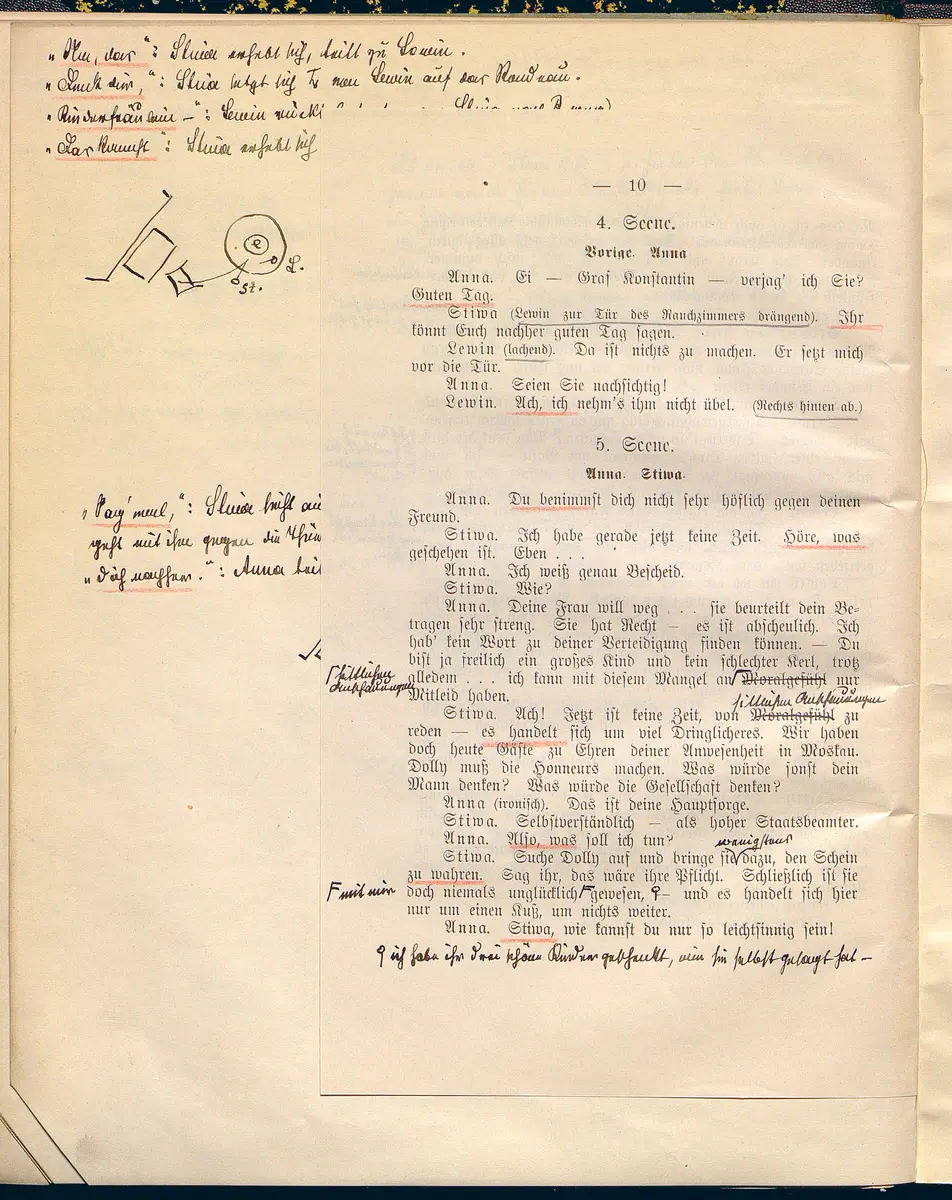 "Nun, das": Stiwa erhebt sich, tritt zu Lewin.
"Denk dir,": Stiwa setzt sich von Lewin auf das Rondeau.
"Kinderfräulein —": Lewin rückt
"Das kommt": Stiwa erhebt sich
— 10 —
4. Scene.
Vorige. Anna
Anna. Ei — Graf Konstantin — verjag' ich Sie?
Guten Tag.
Stiwa (Lewin zur Tür des Rauchzimmers drängend). Ihr
könnt Euch nachher guten Tag sagen.
Lewin (lachend). Da ist nichts zu machen. Er setzt mich
vor die Tür.
Anna. Seien Sie nachsichtig!
Lewin. Ach, ich nehm's ihm nicht übel. (Rechts hinten ab.)
L.
St.
5. Scene.
Anna. Stiwa.
Anna. Du benimmst dich nicht sehr höflich gegen deinen
Freund.
Stiwa. Ich habe gerade jetzt keine Zeit. Höre, was
geschehen ist. Eben . . .
Anna. Ich weiß genau Bescheid.
Stiwa. Wie?
Anna. Deine Frau will weg . . . sie beurteilt dein Be-
tragen sehr streng. Sie hat Recht — es ist abscheulich. Ich
hab' kein Wort zu deiner Verteidigung finden können. — Du
bist ja freilich ein großes Kind und kein schlechter Kerl, trotz
alledem . . . ich kann mit diesem Mangel an Moralgefühl nur
Mitleid haben.
sittlichen
Anschauungen
sittlichen Anschauungen
Stiwa. Ach! Jetzt ist keine Zeit, von Moralgefühl zu
reden — es handelt sich um viel Dringlicheres. Wir haben
doch heute Gäste zu Ehren deiner Anwesenheit in Moskau.
Dolly muß die Honneurs machen. Was würde sonst dein
Mann denken? Was würde die Gesellschaft denken?
Anna (ironisch). Das ist deine Hauptsorge.
Stiwa. Selbstverständlich — als hoher Staatsbeamter.
Anna. Also, was soll ich tun?
wenigstens
Stiwa. Suche Dolly auf und bringe sie dazu, den Schein
zu wahren. Sag ihr, das wäre ihre Pflicht. Schließlich ist sie
doch niemals unglücklich gewesen, — und es handelt sich hier
nur um einen Kuß, um nichts weiter.
mit mir
Anna. Stiwa, wie kannst du nur so leichtsinnig sein!
ich habe ihr drei schöne Kinder geschenkt, wie sie selbst gesagt hat —
"Sag' mal,": Stiwa
geht mit ihm gegen die Thür
"dich nachher.": Anna